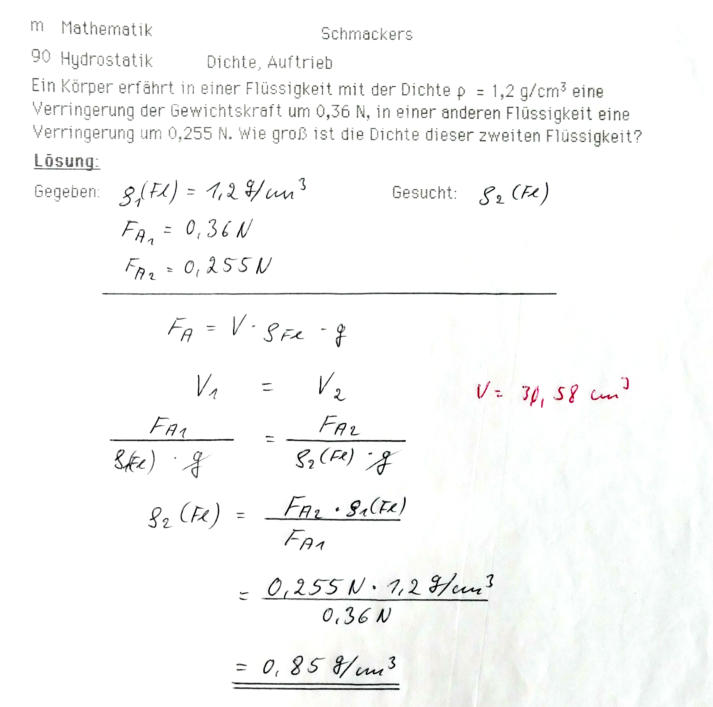 m Mathematik Schmackers
90 Hydrostatik Dichte, Auftrieb
Ein Körper erfährt in einer Flüssigkeit mit der Dichte ρ = 1,2 g/cm³ eine
Verringerung der Gewichtskraft um 0,36 N, in einer anderen Flüssigkeit eine
Verringerung um 0,255 N. Wie groß ist die Dichte dieser zweiten Flüssigkeit?
Lösung:
Gegeben: ρ₁(Fl) = 1,2 g/cm³ Gesucht: ρ₂(Fl)
F_A₁ = 0,36 N
F_A₂ = 0,255 N
F_A = V · ρ_Fl · g
V₁ = V₂ V = 30,58 cm³
F_A1 / ρ₁(Fl) · g = F_A2 / ρ₂(Fl) · g
ρ₂(Fl) = F_A2 · ρ₁(Fl) / F_A1
= 0,255 N · 1,2 g/cm³ / 0,36 N
= 0,85 g/cm³